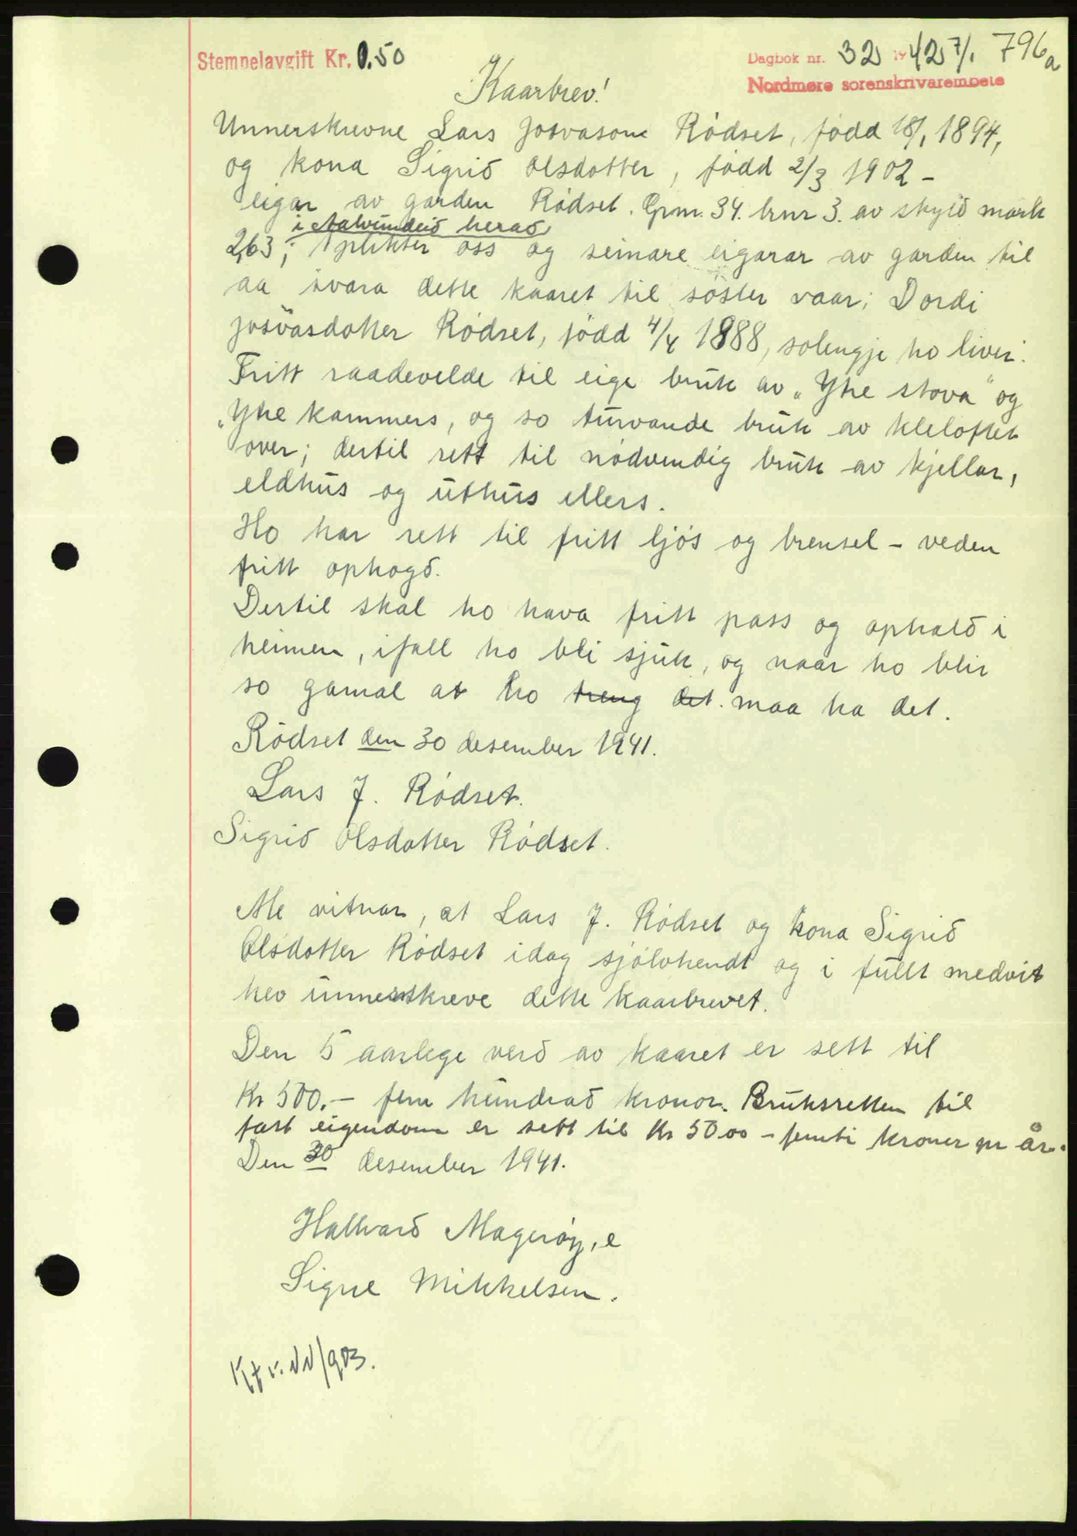 Stempelavgift Kr. 0.50
Dagbok nr. 32 1942 7/1 796a
Nordmøre sorenskrivarembete
Kaarbrev!
Unnerskrevne Lars Josvasson Rødset, född 18/1 1894,
og kona Sigrid Olsdotter, född 2/3 1902 -
eigar av garden Rødset. Grnr. 34. brnr 3. av skyld mark
i Aalvundeid herad
2,63, plikter oss og seinare eigarar av garden til
aa svara dette kaaret til søster vaar; Dordi
Josvasdotter Rødset, född 4/4 1888, solengje ho liver:
Fritt raadevelde til eige bruk av „Ytre stova" og
„Ytre kammers, og so turvande bruk av kleloftet
over; dertil rett til nødvendig bruk av kjellar,
eldhus og uthus ellers.
Ho har rett til fritt ljós og brensel - veden
fritt ophogd.
Dertil skal ho hava fritt pass og ophald i
heimen, ifall ho bli sjuk, og naar ho blir
so gamal at ho treng det. maa ha det.
Rødset den 30 desember 1941.
Lars J. Rødset.
Sigrid Olsdotter Rødset.
Me vitnar, at Lars J. Rødset og kona Sigrid
Olsdotter Rødset idag sjølvhendt og i fullt medvit
hev unnerskreve dette kaarbrevet.
Den 5 aarlege verd av kaaret er sett til
Kr 500.- fem hundrad kronor. Bruksretten til
fast eigendom er sett til Kr 50.00 - femti kroner pr år.
Den 30 desember 1941.
Hallvard Magerøy, e
Signe Mikkelsen.